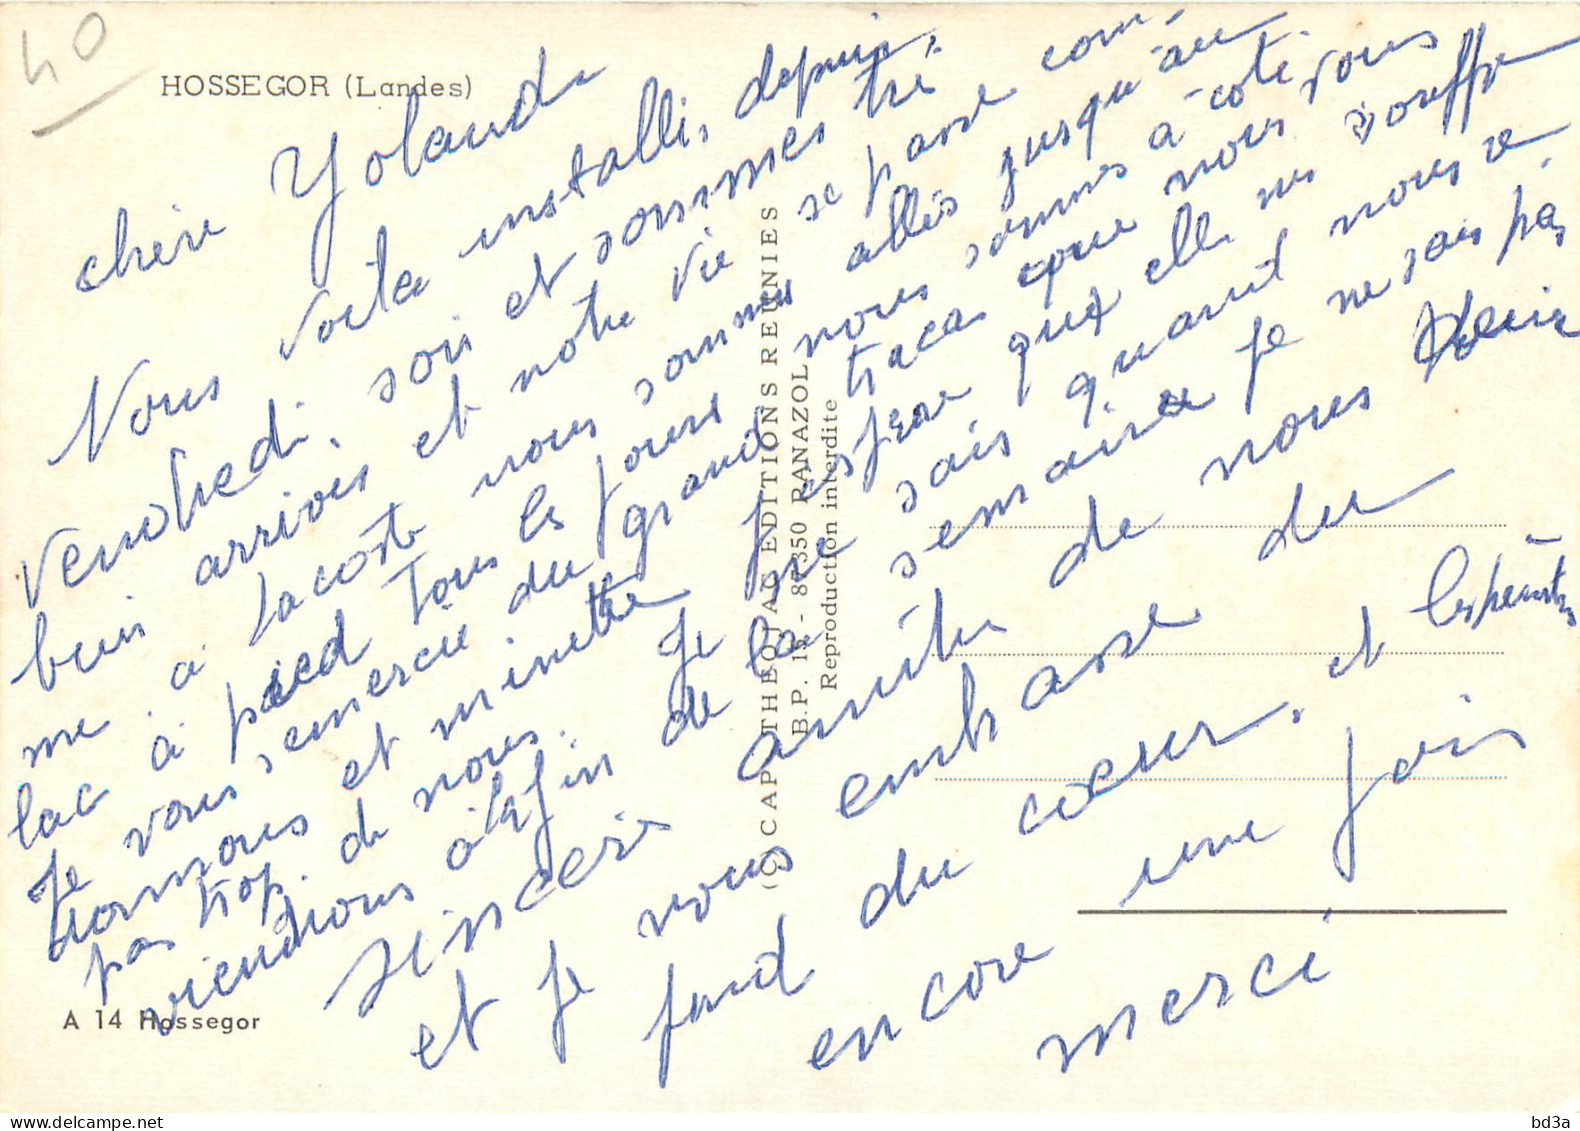 40
HOSSEGOR (Landes)
chère Yolande
Nous voila installés, depuis
vendredi, soir et sommes très
bien arrivés et notre vie se passe com-
me à Lacoste nous sommes allés jusqu'au
lac à pied Tous les jours nous sommes à côté.
Je vous remercie du grand tracas que nous vous
donnons et minette j'espère qu'elle ne souffre
pas trop. de nous. Je ne sais quand nous re
viendrons à la fin de la semaine je ne sais pas
sincères amitiés de nous deux
et je vous embrasse du
fond du coeur. et
encore une fois
merci
(C) CAP-THEOJAC EDITIONS REUNIES
B.P. 15 - 87350 PANAZOL
Reproduction interdite
A 14 Hossegor
bd3a